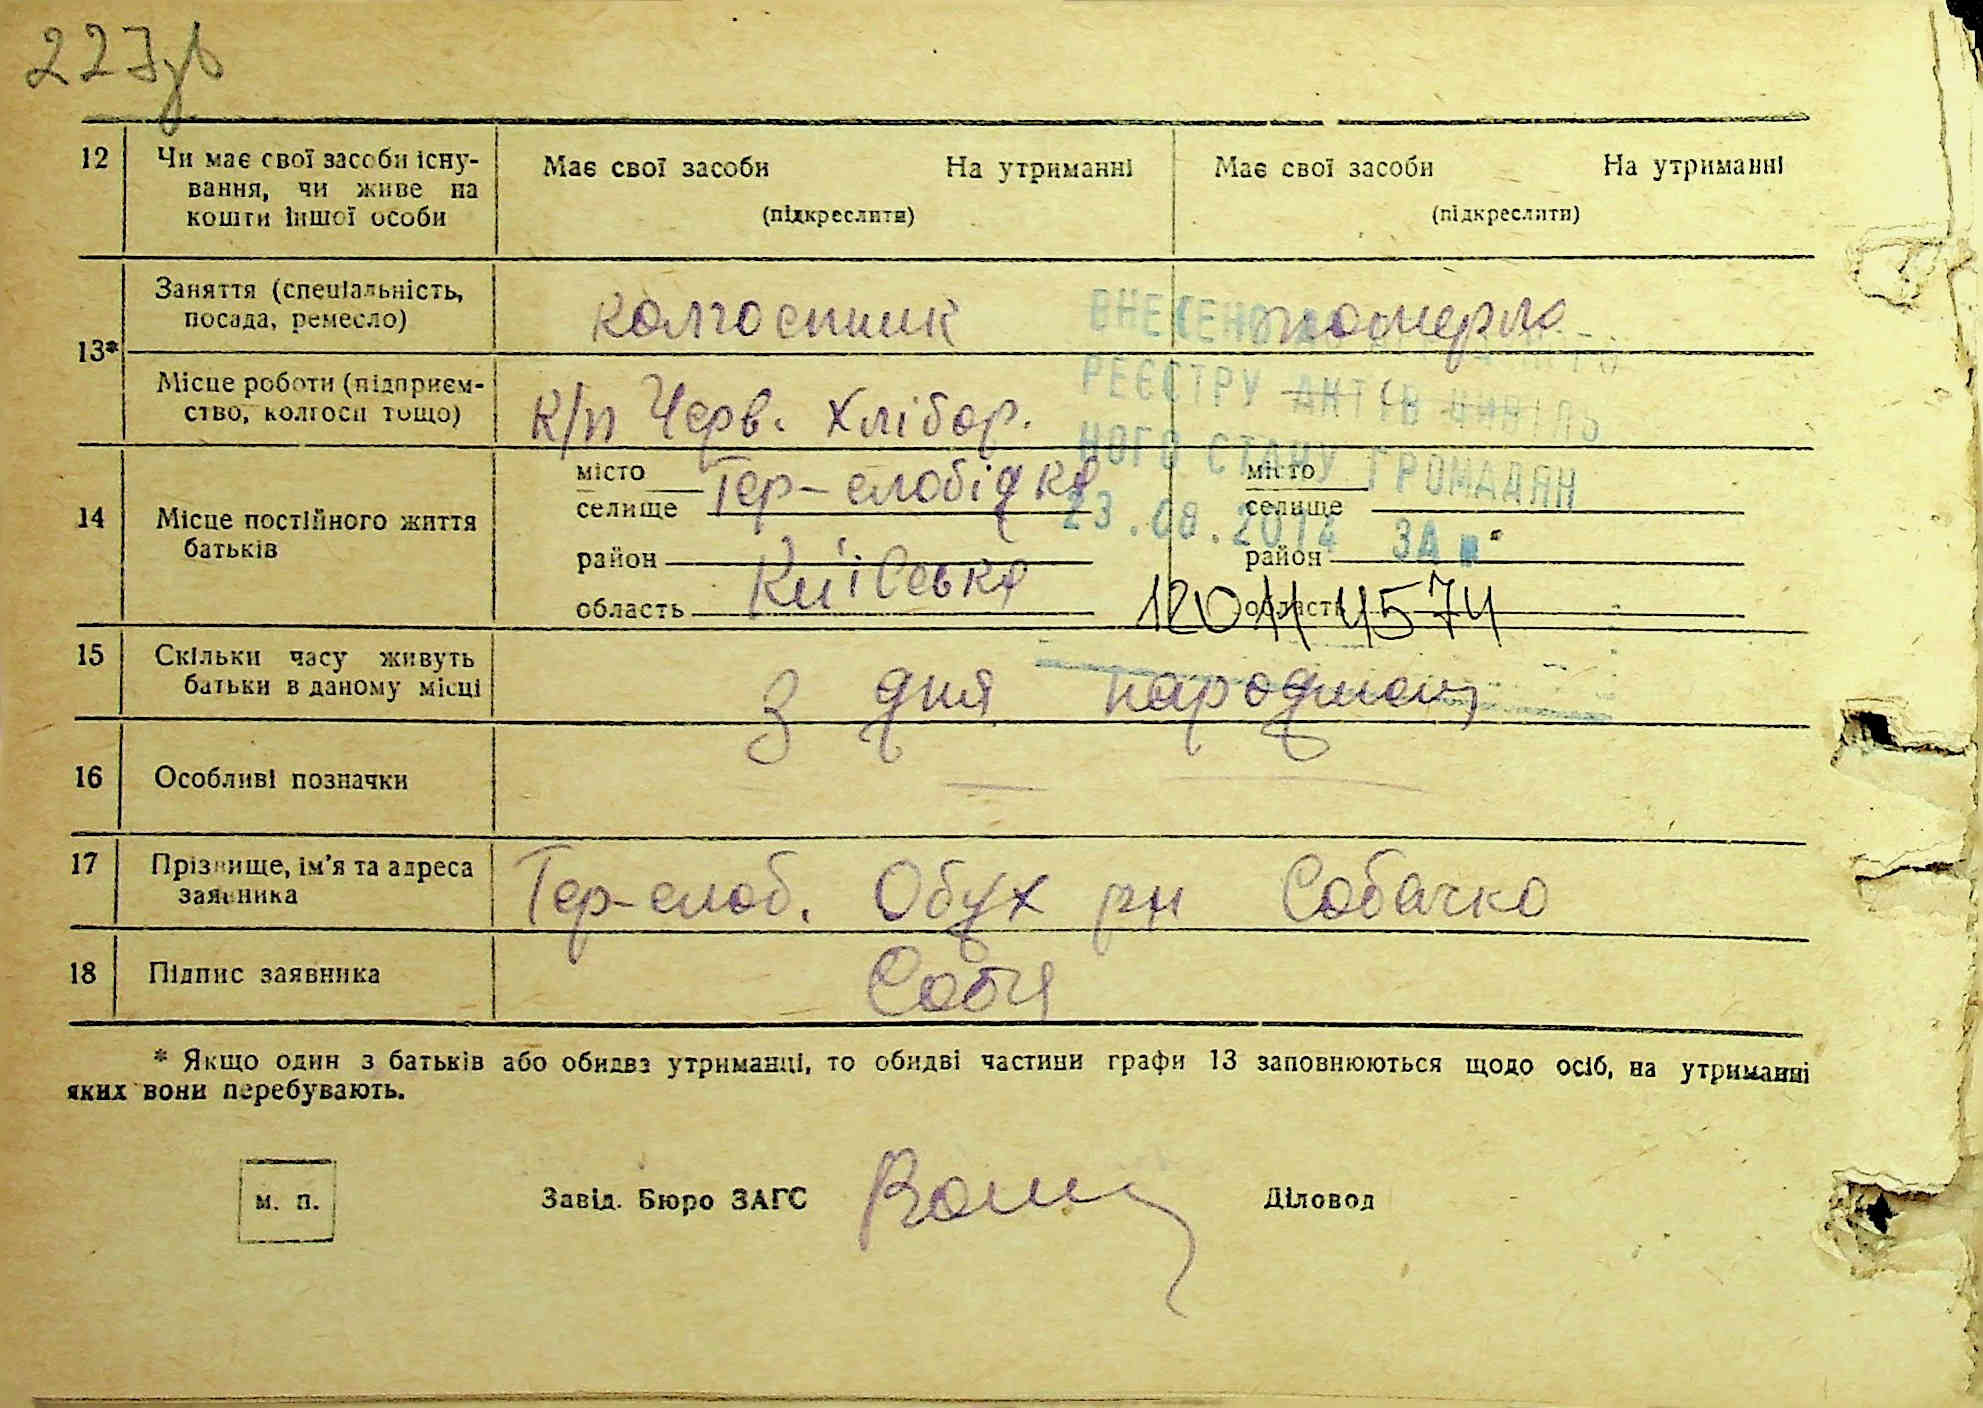 227зв
12 Чи має свої засоби існу-
вання, чи живе на
кошти іншої особи
Має свої засоби На утриманні
(підкреслити)
Має свої засоби На утриманні
(підкреслити)
13*
Заняття (спеціальність,
посада, ремесло)
колгоспник
померла
Місце роботи (підприєм-
ство, колгосп тощо)
к/п Черв. Хлібор.
ВНЕСЕНО
РЕЄСТРУ АКТІВ ЦИВІЛЬ
НОГО СТАНУ ГРОМАДЯН
23.08.2014 ЗА №
14 Місце постійного життя
батьків
місто
селище Гер-слобідка
район
область Київська
місто
селище
район
область
15 Скільки часу живуть
батьки в даному місці
з дня народжен
16 Особливі позначки
17 Прізвище, ім'я та адреса
заявника
Гер-слоб. Обух рн Собачко
18 Підпис заявника
* Якщо один з батьків або обидва утриманці, то обидві частини графи 13 заповнюються щодо осіб, на утриманні
яких вони перебувають.
м. п.
Завід. Бюро ЗАГС
Діловод